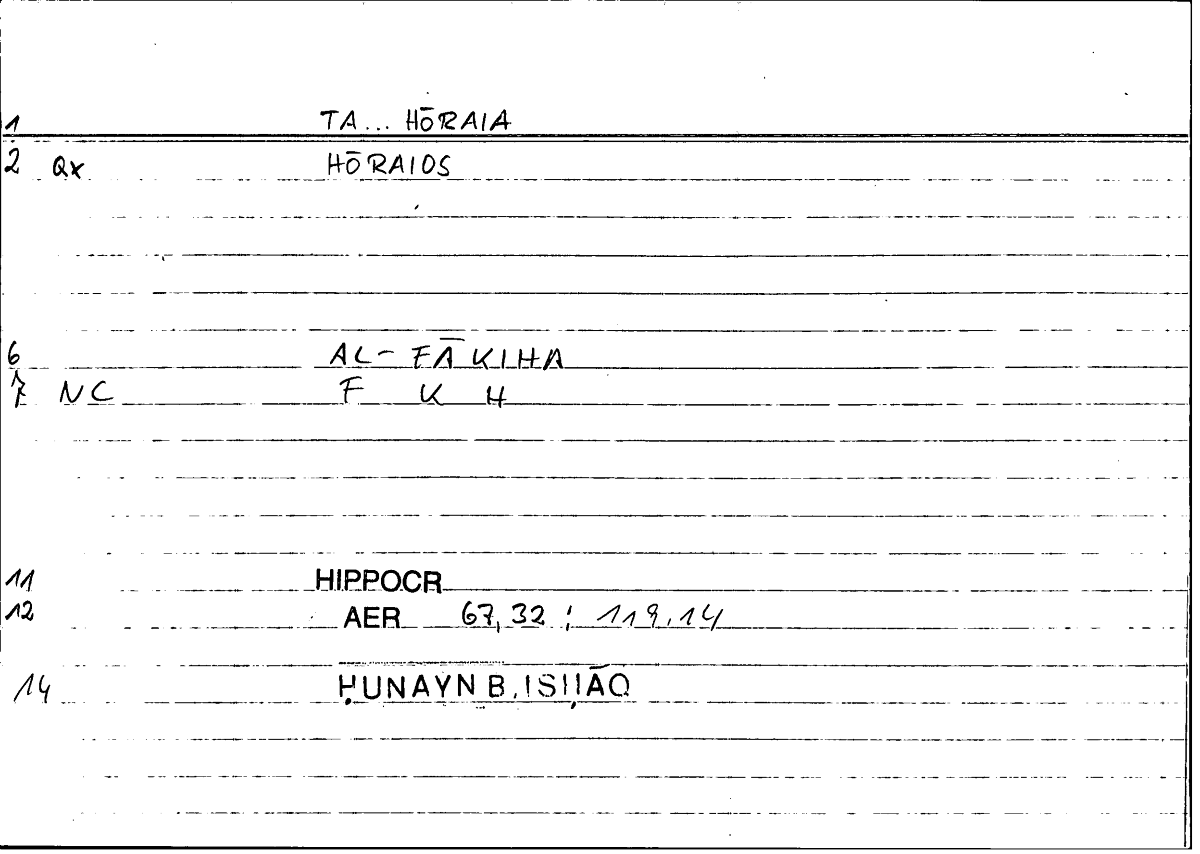 1 TA... HŌRAIA
2 Qx HŌRAIOS
6 AL-FĀKIHA
7 NC F K H
11 HIPPOCR
12 AER 67,32 ; 119.14
14 ḤUNAYN B. ISḤĀQ